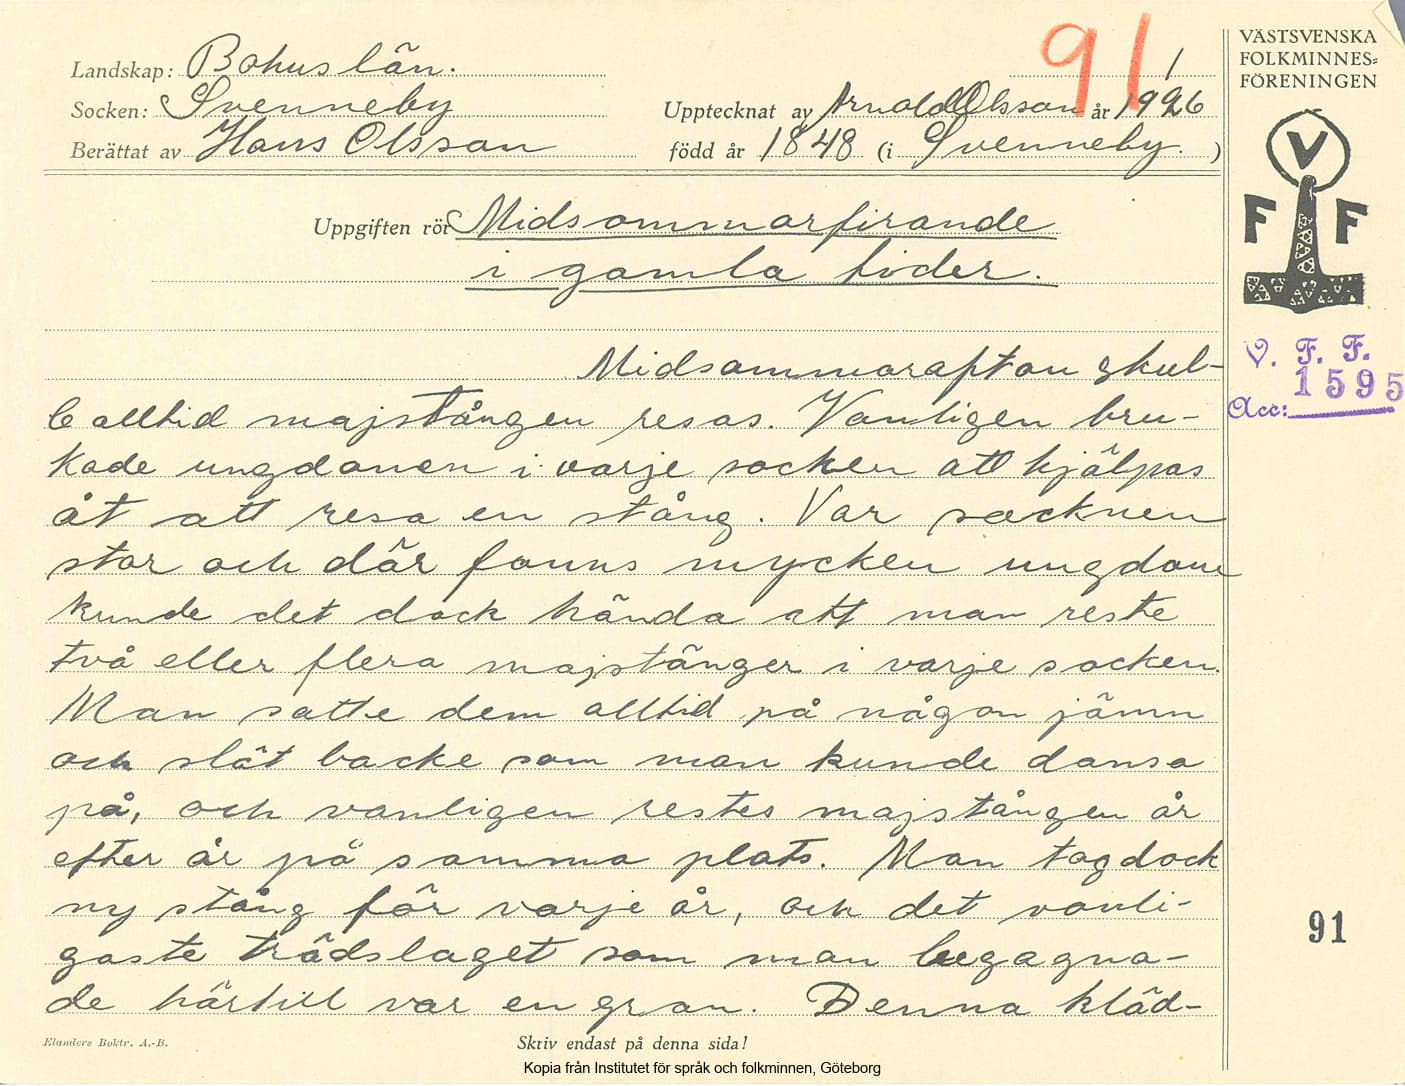 Landskap: Bohuslän.
Socken: Svenneby
Berättat av Hans Olsson
91 1
Upptecknat av Arnold Olsson år 1926
född år 1848 (i Svenneby. )
VÄSTSVENSKA
FOLKMINNES=
FÖRENINGEN
V
F F
V. F. F.
1595
Acc:
Uppgiften rör Midsommarfirande
i gamla tider.
Midsommarafton skul-
le alltid majstången resas. Vanligen bru-
kade ungdomen i varje socken att hjälpas
åt att resa en stång. Var socknen
stor och där fanns mycken ungdom
kunde det dock hända att man reste
två eller flera majstänger i varje socken.
Man satte dem alltid på någon jämn
och slät backe som man kunde dansa
på, och vanligen restes majstången år
efter år på samma plats. Man tog dock
ny stång för varje år, och det vanli-
gaste trädslaget som man begagna-
de härtill var en gran. Denna kläd-
91
Elanders Boktr. A.-B.
Skriv endast på denna sida!
Kopia från Institutet för språk och folkminnen, Göteborg